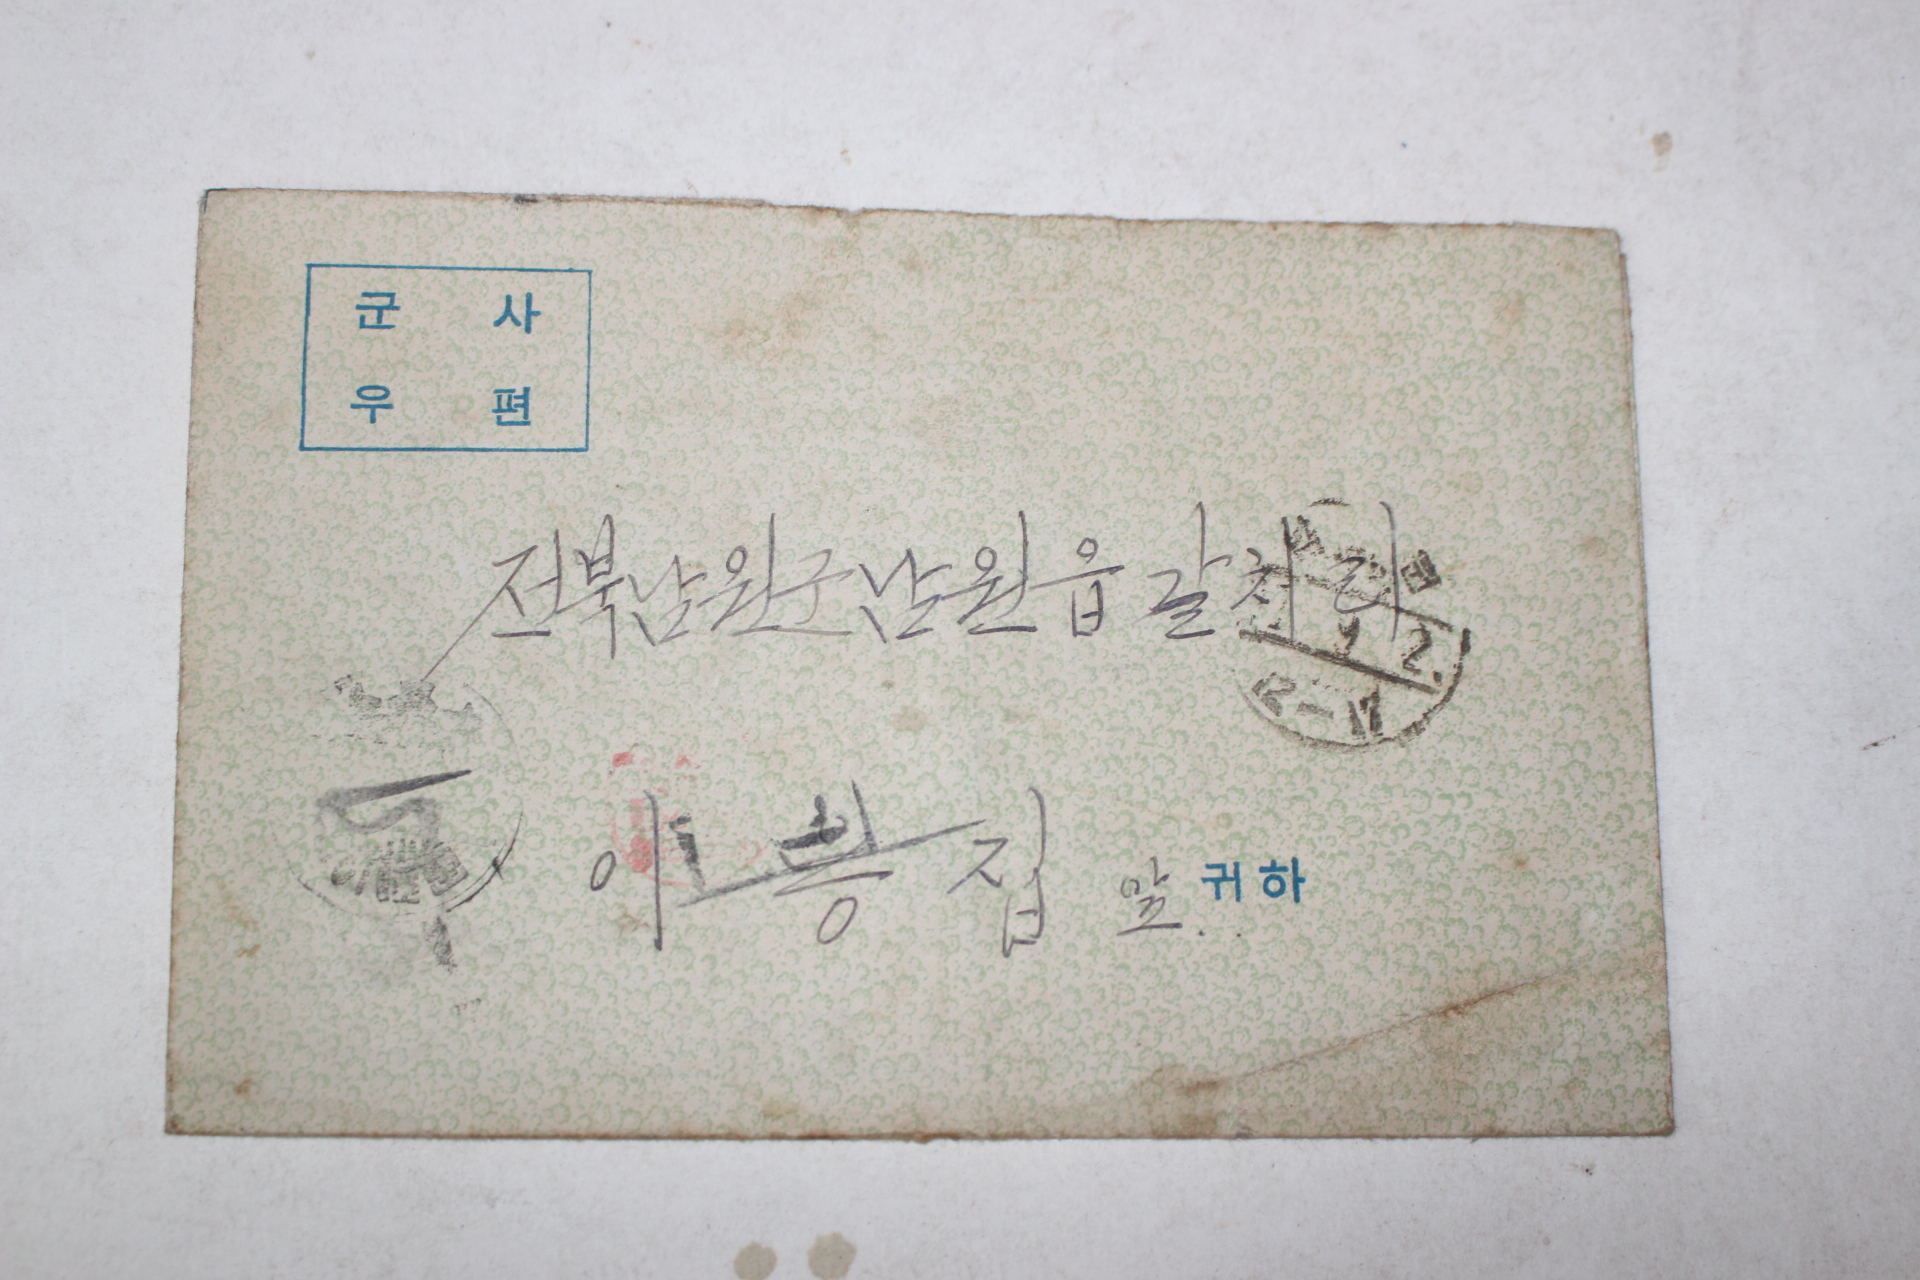 군 사
우 편
전북남원군남원읍갈치리
2.
12-17
이 흥 집 앞. 귀하